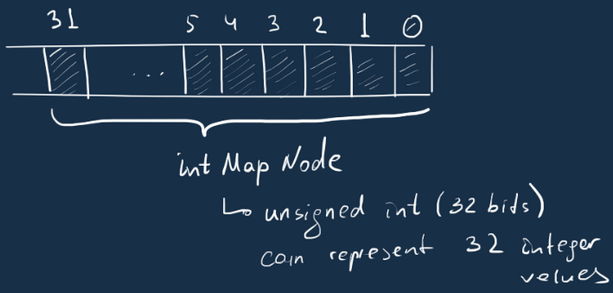 31 5 4 3 2 1 0
...
int Map Node
unsigned int (32 bits)
can represent 32 integer
values